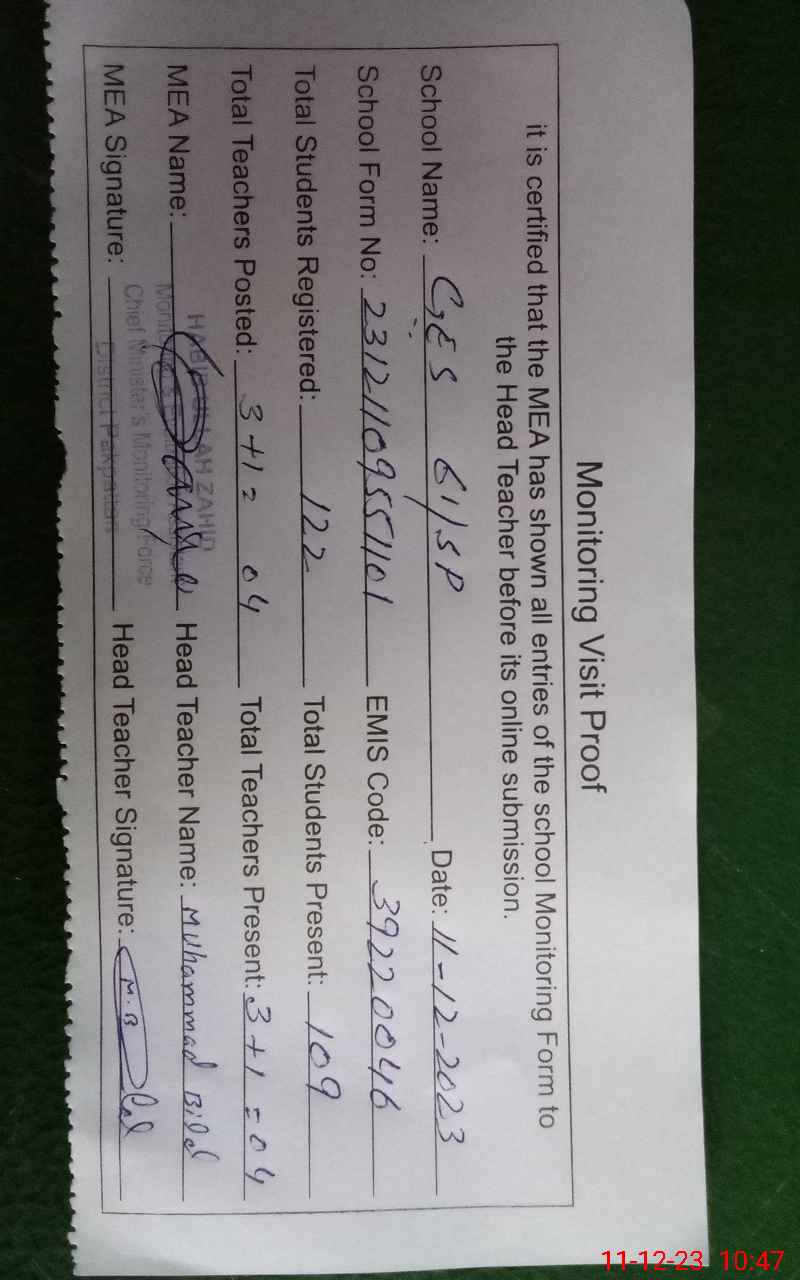 Monitoring Visit Proof
it is certified that the MEA has shown all entries of the school Monitoring Form to
the Head Teacher before its online submission.
School Name: GES 61/SP Date: 11-12-2023
School Form No: 231211095551101 EMIS Code: 39220046
Total Students Registered: 122 Total Students Present: 109
Total Teachers Posted: 3+1= 04 Total Teachers Present: 3+1=04
MEA Name: Head Teacher Name: Muhammad Bilal
MEA Signature: Head Teacher Signature: M.Bilal
ZAHID
Chief Minister's Monitoring Force
District Pakpattan
11-12-23 10:47